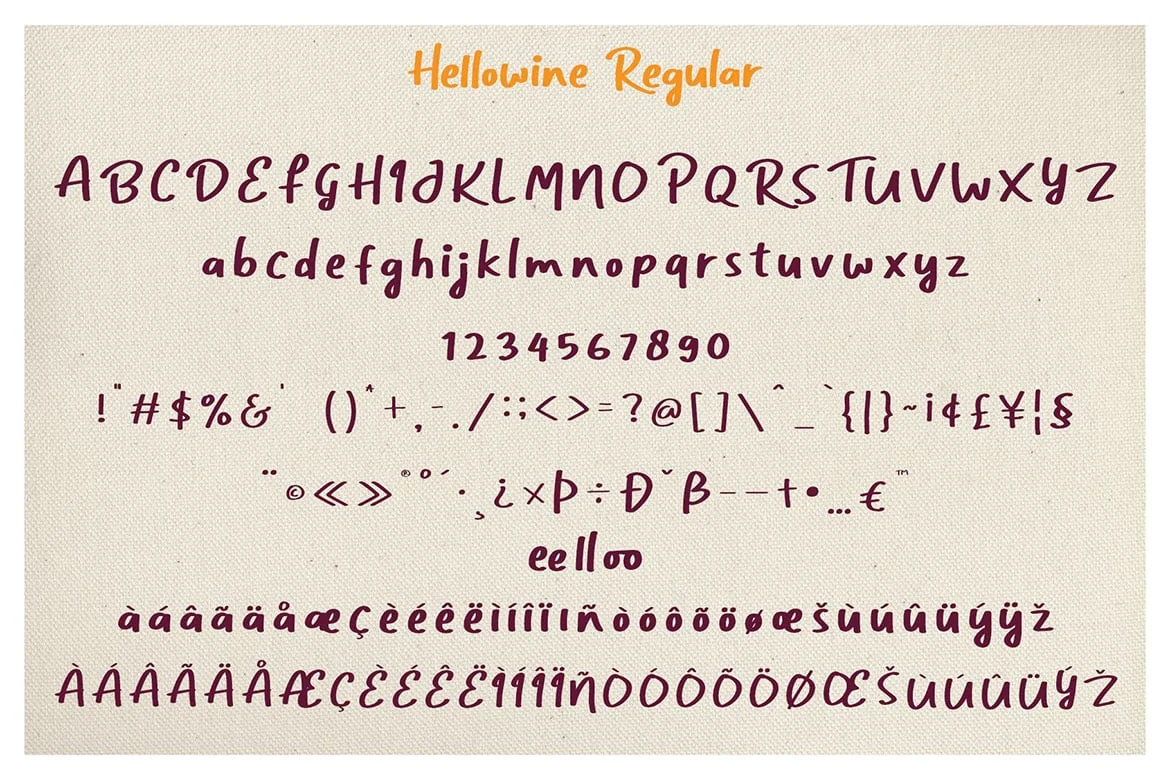 Hellowine Regular
ABCDEFGHIJKLMNOPQRSTUVWXYZ
abcdefghijklmnopqrstuvwxyz
1234567890
!"#$%&' ()*+,-./:;<>=?@[]\^_`{|}~¡¢£¥¦§
¨©«»®°´·¸¿×Þ÷Ðˇβ––†•…€™
eelloo
àáâãäåæçèéêëìíîïıñòóôõöøœšùúûüýÿž
ÀÁÂÃÄÅÆÇÈÉÊËÌÍÎÏÑÒÓÔÕÖØŒŠÙÚÛÜÝŽ